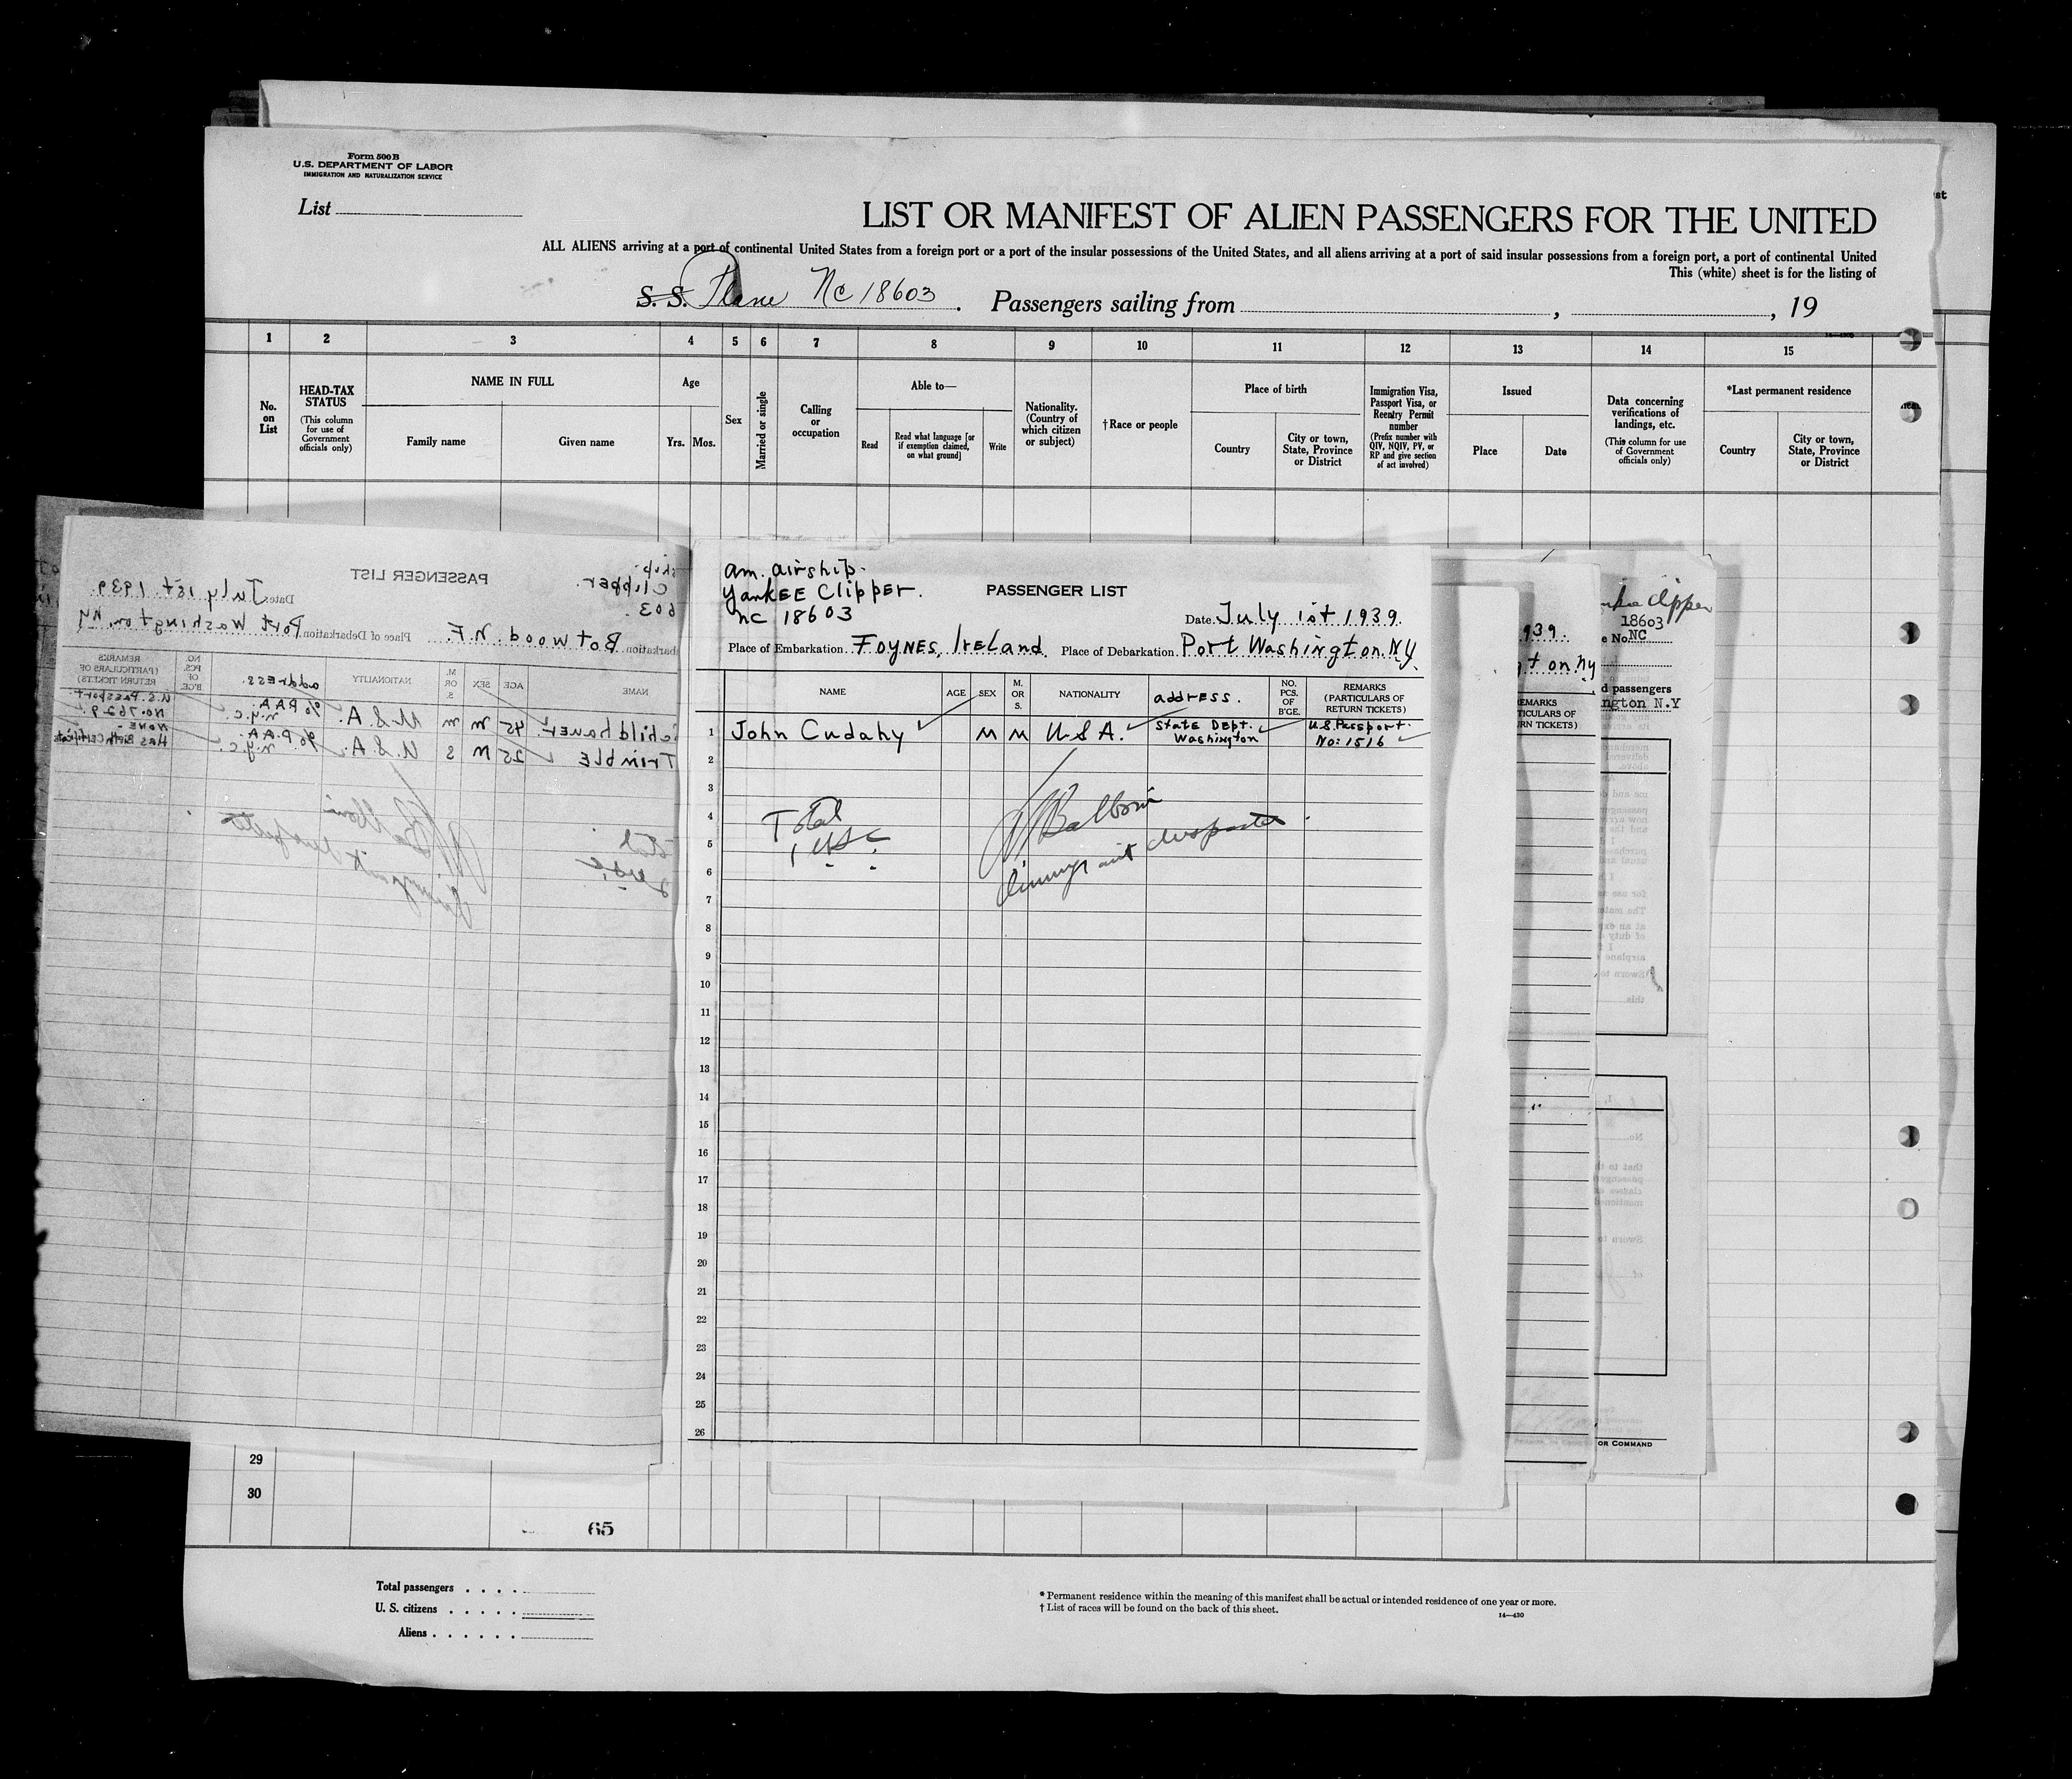 Form 500 B
U.S. DEPARTMENT OF LABOR
IMMIGRATION AND NATURALIZATION SERVICE
List
LIST OR MANIFEST OF ALIEN PASSENGERS FOR THE UNITED
ALL ALIENS arriving at a port of continental United States from a foreign port or a port of the insular possessions of the United States, and all aliens arriving at a port of said insular possessions from a foreign port, a port of continental United
This (white) sheet is for the listing of
S. S. Plane NC 18603. Passengers sailing from , , 19
1 2 3 4 5 6 7 8 9 10 11 12 13 14 15
No. on List
HEAD-TAX STATUS
(This column for use of Government officials only)
NAME IN FULL
Family name
Given name
Age
Yrs. Mos.
Sex
Married or single
Calling or occupation
Able to—
Read
Read what language [or if exemption claimed, on what ground]
Write
Nationality. (Country of which citizen or subject)
†Race or people
Place of birth
Country
City or town, State, Province or District
Immigration Visa, Passport Visa, or Reentry Permit number
(Prefix number with QIV, NQIV, PV, or RP and give section of act involved)
Issued
Place
Date
Data concerning verifications of landings, etc.
(This column for use of Government officials only)
*Last permanent residence
Country
City or town, State, Province or District
ship.
Clipper.
603
PASSENGER LIST
Date: July 1st 1939.
barkation Botwood. N.F. Place of Debarkation Port Washington, NY
NAME AGE SEX M. OR S. NATIONALITY address. NO. PCS. OF B'GE. REMARKS (PARTICULARS OF RETURN TICKETS)
Schildhauer 45 M M U.S.A. % P.A.A. N.Y.C. U.S. Passport No. 7629.
Trimble 25 M S U.S.A. % P.A.A. N.Y.C. NONE - Has Birth Certificate
am. airship.
Yankee Clipper.
NC 18603
PASSENGER LIST
Date July 1st 1939.
Place of Embarkation FOYNES, IRELAND. Place of Debarkation Port Washington. N.Y.
NAME AGE SEX M. OR S. NATIONALITY address. NO. PCS. OF B'GE. REMARKS (PARTICULARS OF RETURN TICKETS)
1 John Cudahy M M USA. State Dept. Washington U.S. Passport No: 1516
2
3
4
5
6
7
8
9
10
11
12
13
14
15
16
17
18
19
20
21
22
23
24
25
26
Total
1 USC
Balboni
Immigrant Inspector
939.
ton NY
EMARKS
TICULARS OF
RN TICKETS)
Clipper
18603
e No. NC
d passengers
ngton N.Y
OR COMMAND
29
30
65
Total passengers . . . .
U. S. citizens . . . . .
Aliens . . . . . .
* Permanent residence within the meaning of this manifest shall be actual or intended residence of one year or more.
† List of races will be found on the back of this sheet.
14—430